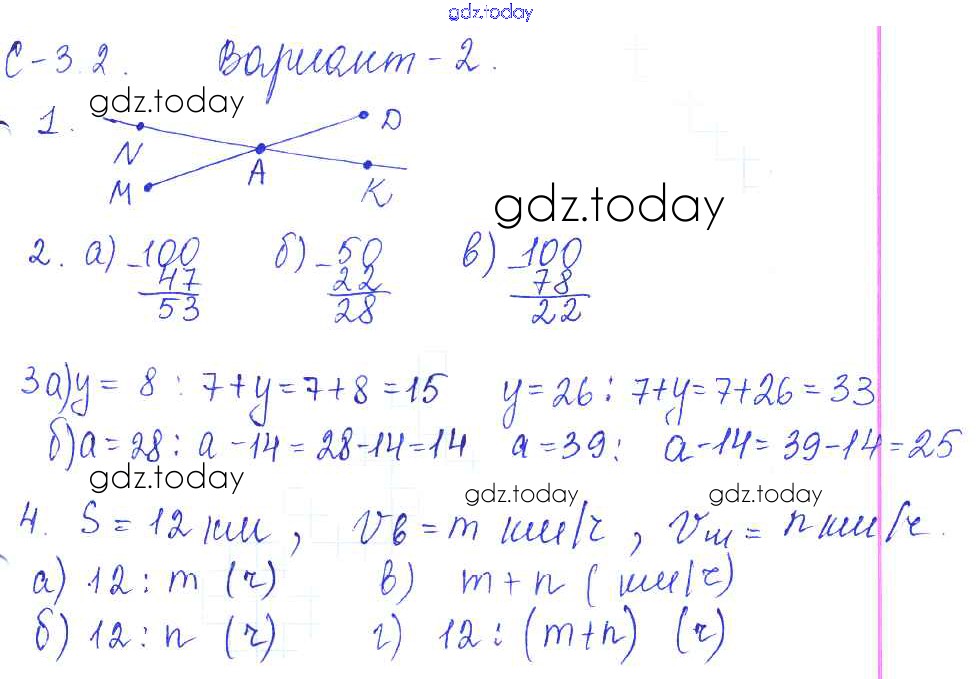 gdz.today
С-3.2. Вариант-2.
gdz.today
1. N A D
M K
gdz.today
2. а) -100 б) -50 в) -100
47 22 78
53 28 22
3а) y = 8 : 7+y=7+8=15 y=26: 7+y=7+26=33
б) a=28: a-14=28-14=14 a=39: a-14=39-14=25
gdz.today gdz.today gdz.today
4. S = 12 км, Vв = m км/ч, Vм = n км/ч.
а) 12 : m (ч) в) m+n (км/ч)
б) 12 : n (ч) г) 12 : (m+n) (ч)